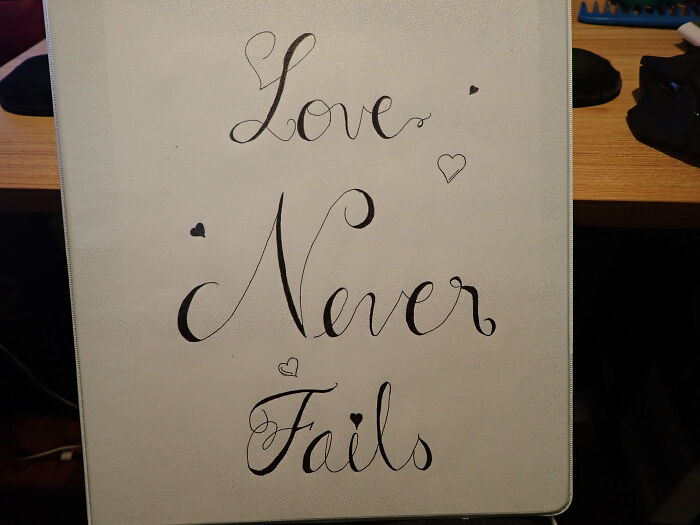 Love
Never
Fails